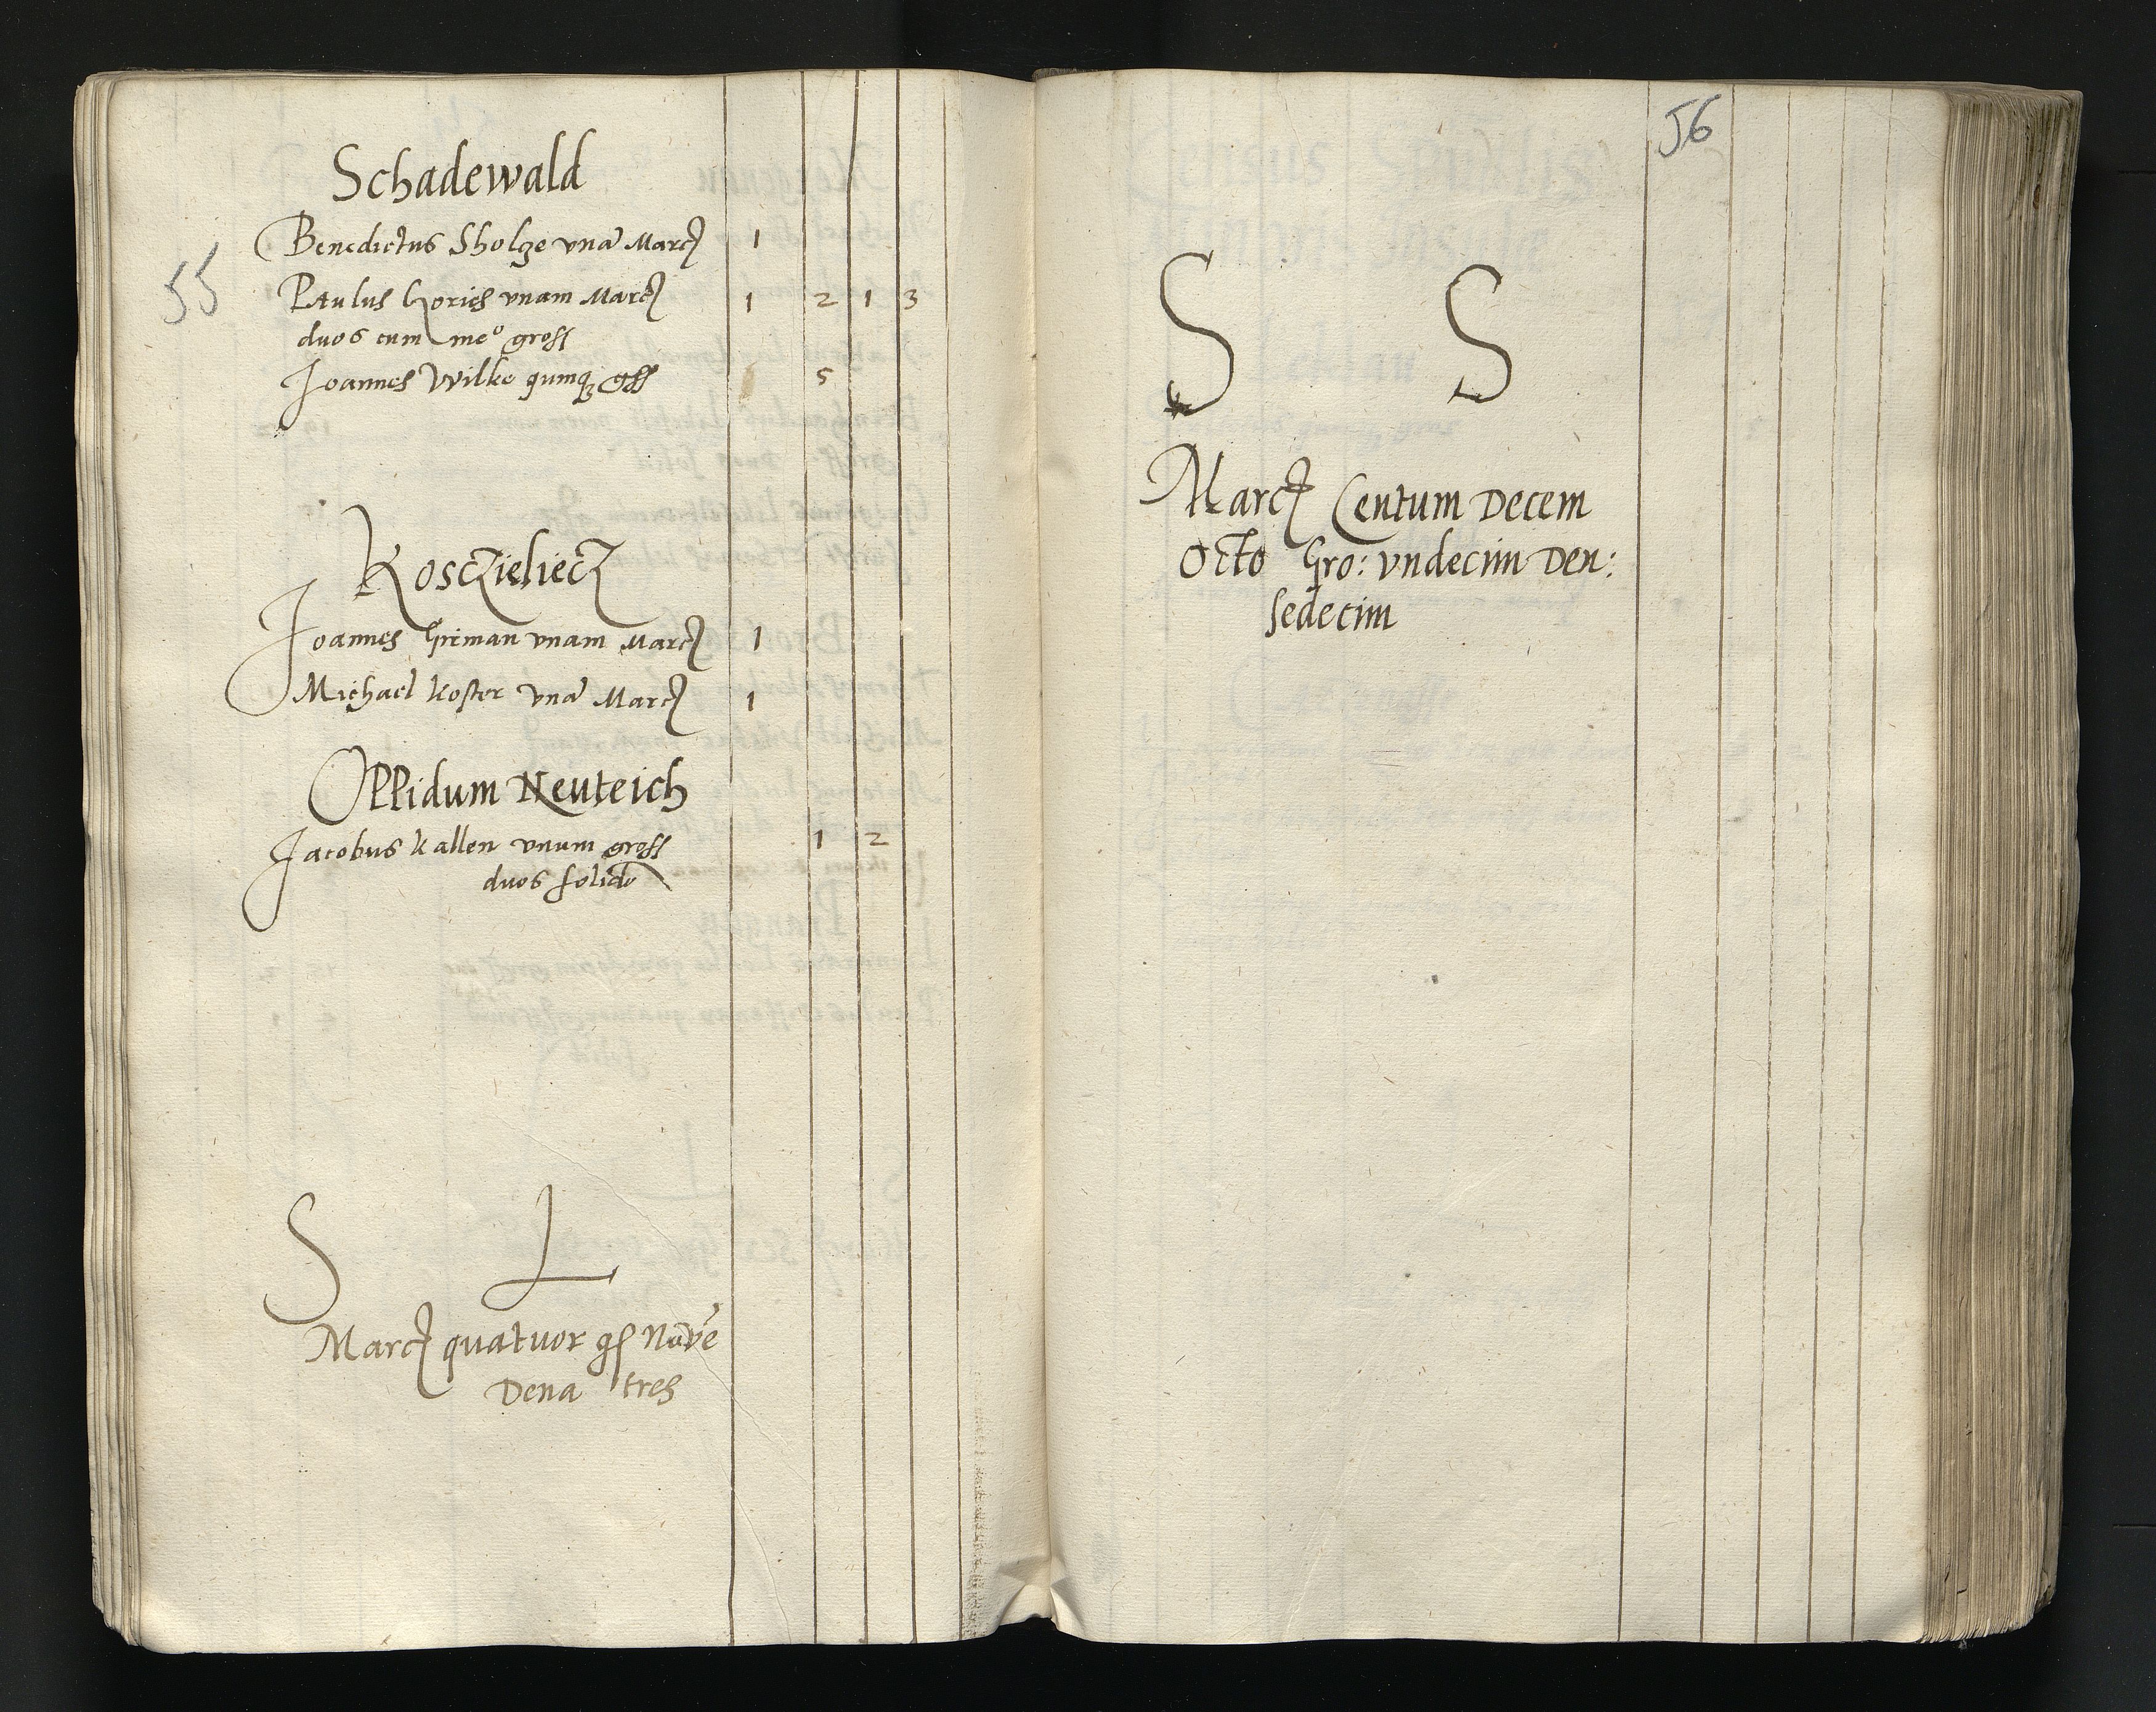 Schadewald
Benedictus Sholze vna Marc 1
55
Paulus Gories vnam Marc 1 2 1 3
duos cum me° gross
Joannes Wilke quinq gss 5
Kosczieliecz
Joannes Griman vnam Marc 1
Michael Koster vna Marc 1
Oppidum Neuteich
Jacobus Kallen vnum gross 1 2
duos solido
S L
Marc quatuor gs Nove
Dena tres
56
S S
Marc Centum Decem
Octo Gro: vndecim Den:
sedecim